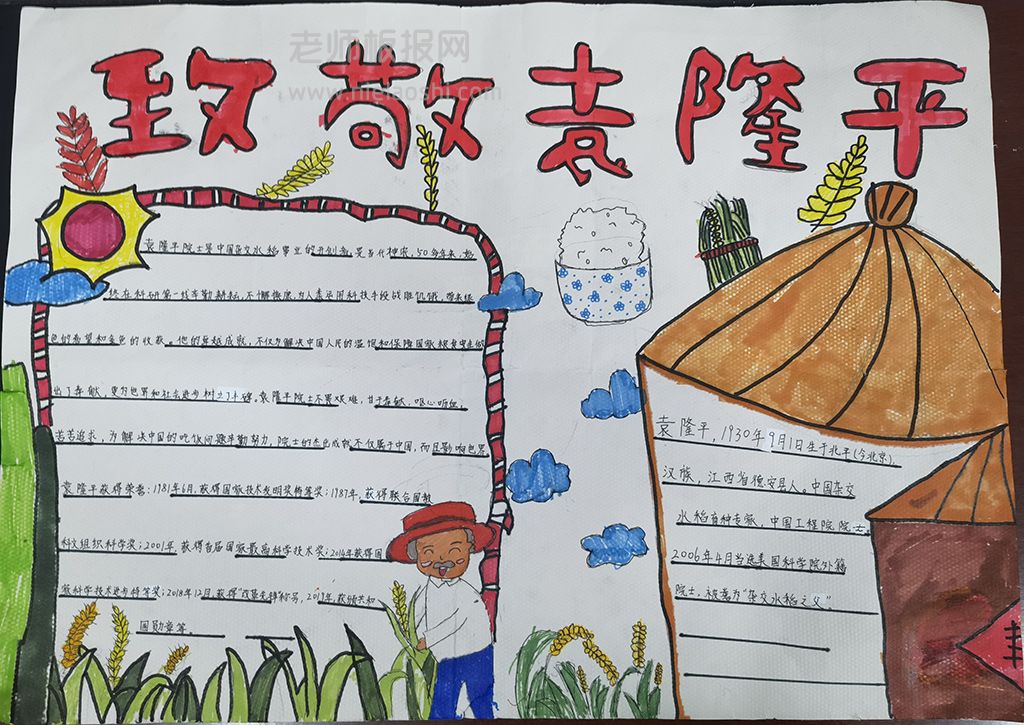 老师板报网
致敬袁隆平
袁隆平院士是中国杂交水稻事业的开创者,是当代神农,50多年来,始
终在科研第一线辛勤耕耘,不懈探索,为人类运用科技手段战胜饥饿,带来绿
色的希望和金色的收获。他的卓越成就,不仅为解决中国人民的温饱和保障国家粮食安全做
出了贡献,更为世界和社会进步树立了丰碑。袁隆平院士不畏艰难,甘于奉献,呕心沥血,
苦苦追求,为解决中国的吃饭问题辛勤努力,院士的杰出成就不仅属于中国,而且影响世界
袁隆平获得荣誉:1981年6月,获得国家技术发明奖特等奖;1987年,获得联合国教
科文组织科学奖;2001年,获得首届国家最高科学技术奖;2014年获得国
家科学技术进步特等奖;2018年12月,获得"改革先锋"称号,2019年获颁共和
国勋章等。
袁隆平,1930年9月1日生于北平(今北京),
汉族,江西省德安县人。中国杂交
水稻育种专家,中国工程院院士,
2006年4月当选美国科学院外籍
院士,被誉为"杂交水稻之父"。